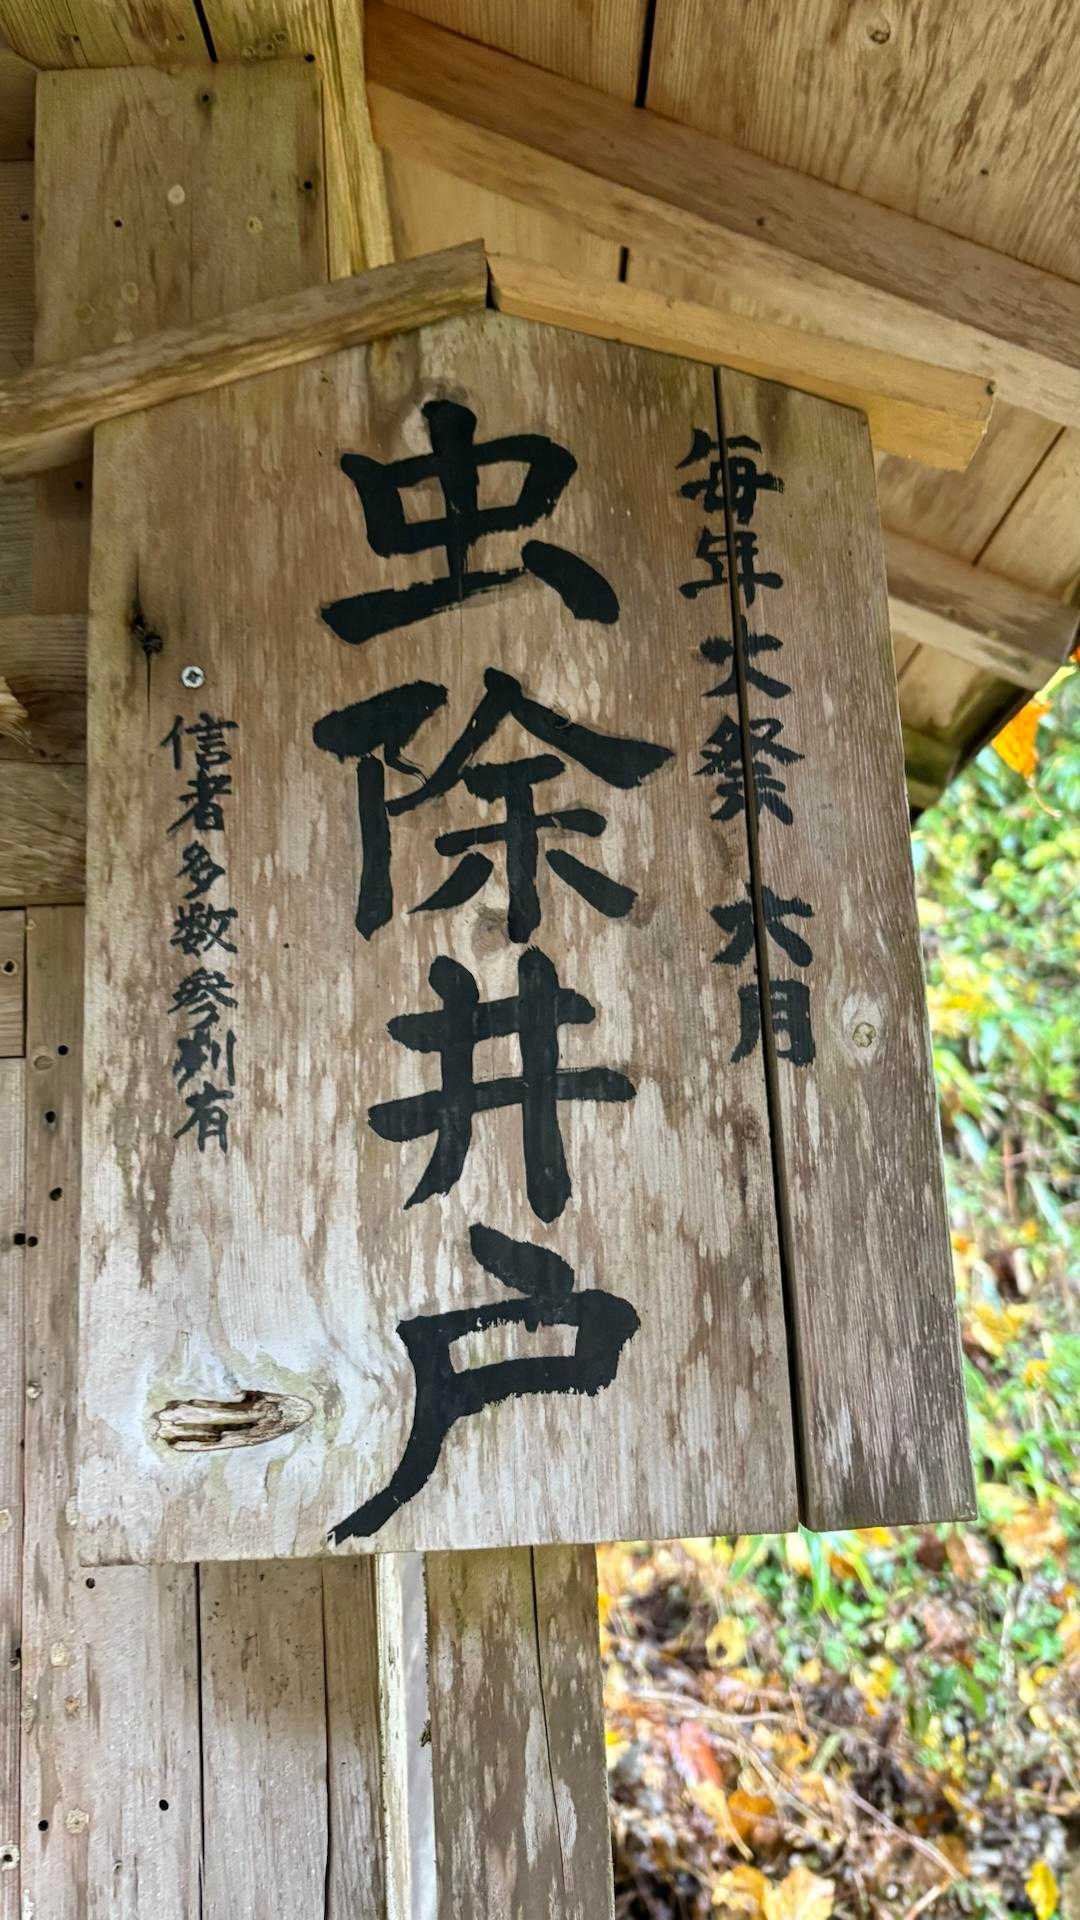 毎年大祭 六月
虫除井戸
信者多数参列有